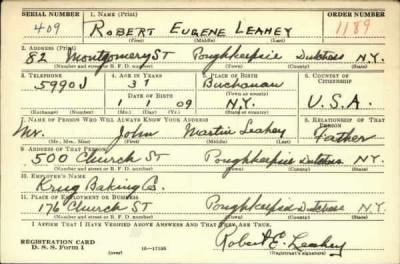 SERIAL NUMBER 1. NAME (Print) ORDER NUMBER
409 ROBERT EUGENE LEAHEY 1189
(First) (Middle) (Last)
2. ADDRESS (Print)
82 Montgomery ST Poughkeepsie Dutchess N.Y.
(Number and street or R. F. D. number) (Town) (County) (State)
3. TELEPHONE 4. AGE IN YEARS 5. PLACE OF BIRTH 6. COUNTRY OF CITIZENSHIP
5990J 31 Buchanan
DATE OF BIRTH (Town or county)
1 1 09 N.Y. U.S.A.
(Exchange) (Number) (Mo.) (Day) (Yr.) (State or country)
7. NAME OF PERSON WHO WILL ALWAYS KNOW YOUR ADDRESS 8. RELATIONSHIP OF THAT PERSON
Mr. John Martin Leahey Father
(Mr., Mrs., Miss) (First) (Middle) (Last)
9. ADDRESS OF THAT PERSON
500 Church ST Poughkeepsie Dutchess N.Y.
(Number and street or R. F. D. number) (Town) (County) (State)
10. EMPLOYER'S NAME
Krug Baking Co.
11. PLACE OF EMPLOYMENT OR BUSINESS
176 Church ST Poughkeepsie Dutchess N.Y.
(Number and street or R. F. D. number) (Town) (County) (State)
I AFFIRM THAT I HAVE VERIFIED ABOVE ANSWERS AND THAT THEY ARE TRUE.
Robert E. Leahey
REGISTRATION CARD
D. S. S. Form 1 (over) 16—17105 (Registrant's signature)